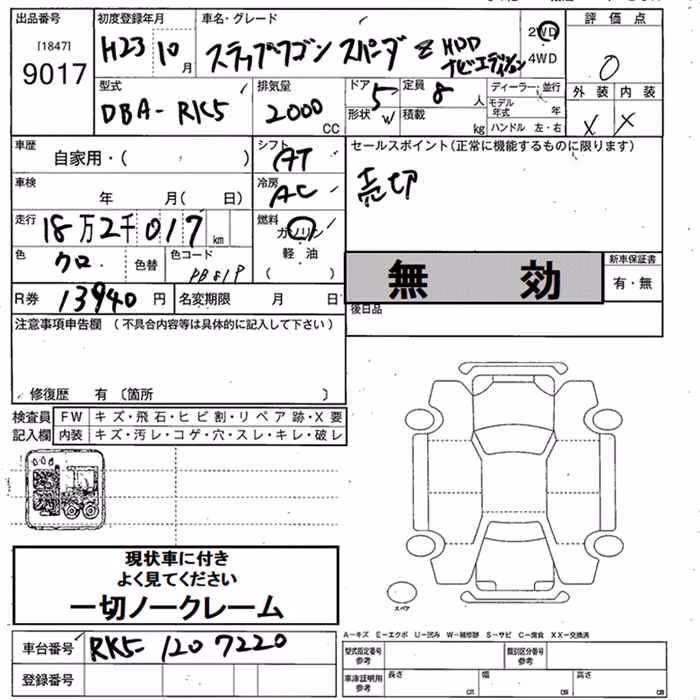 出品番号 初度登録年月 車名・グレード 評価点
[1847]
9017
H23 10月 ステップワゴン スパーダ Z HDD ナビエディション
2WD
4WD
0
外装 内装
X X
型式 排気量 ドア 定員 ディーラー・並行
DBA-RK5 2000 CC 5 8 人
形状 W 積載 kg
モデル年式 年
ハンドル 左・右
車歴 シフト セールスポイント(正常に機能するものに限ります)
自家用・( ) AT
売切
車検 年 月( 日) 冷房 AC
走行 18万2千017 km 燃料 ガソリン
軽油
( )
色 クロ 色替 色コード
無 効
新車保証書
有・無
R券 13940 円 名変期限 月 日
後日品
注意事項申告欄 (不具合内容等は具体的に記入して下さい)
修復歴 有 〔箇所 〕
検査員 FW キズ・飛石・ヒビ割・リペア跡・X要
記入欄 内装 キズ・汚レ・コゲ・穴・スレ・キレ・破レ
現状車に付き
よく見てください
一切ノークレーム
スペア
A-キズ E-エクボ U-凹み W-補修跡 S-サビ C-腐食 XX-交換済
車台番号 RK5-1207220
型式指定番号 参考 類別区分番号 参考
登録番号
車庫証明用 参考 長さ cm 幅 cm 高さ cm